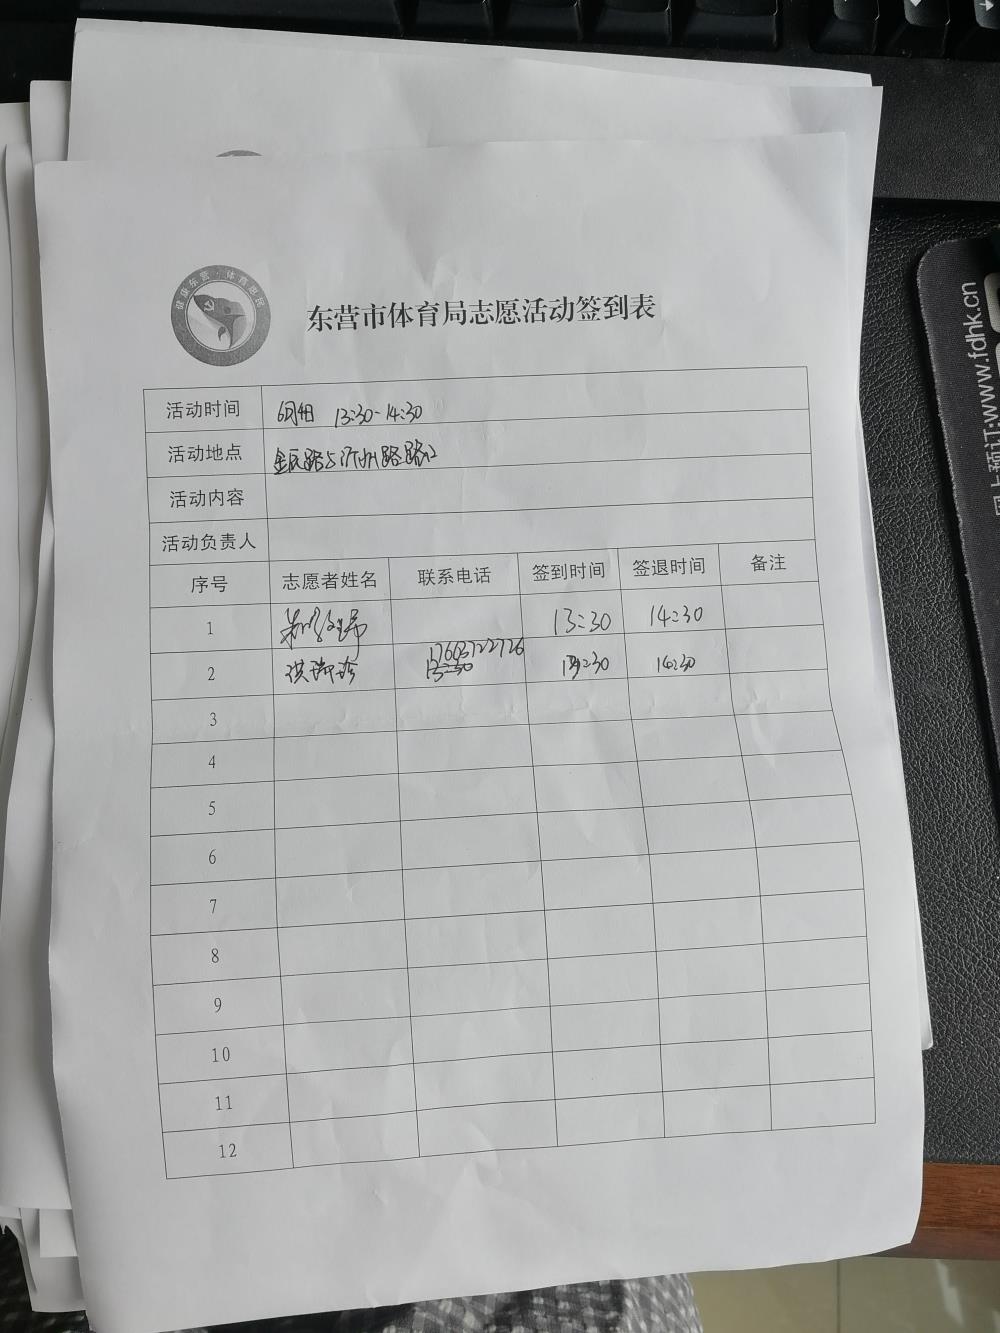 健康东营·体育惠民
东营市体育局志愿活动签到表
活动时间 6月4日 13:30-14:30
活动地点 金辰路与沂州路路口
活动内容
活动负责人
序号 志愿者姓名 联系电话 签到时间 签退时间 备注
1 13:30 14:30
2 洪瑞珍 17603722726 13:30 13:30 14:30
3
4
5
6
7
8
9
10
11
12
网上预订:www.fdhk.cn